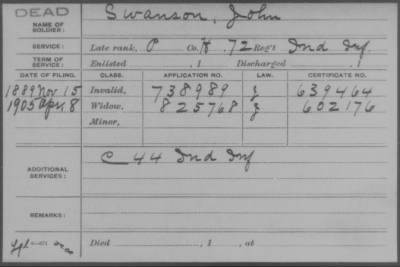 DEAD
NAME OF SOLDIER: Swanson, John
SERVICE: Late rank, P Co. K, 72 Reg't Ind Inf.
TERM OF SERVICE: Enlisted , 1 Discharged , 1
DATE OF FILING. CLASS. APPLICATION NO. LAW. CERTIFICATE NO.
1889 Nov. 15 Invalid, 738989 639464
1905 Apr. 8 Widow, 825768 602176
Minor,
ADDITIONAL SERVICES: C 44 Ind Inf
REMARKS:
Died , 1 , at